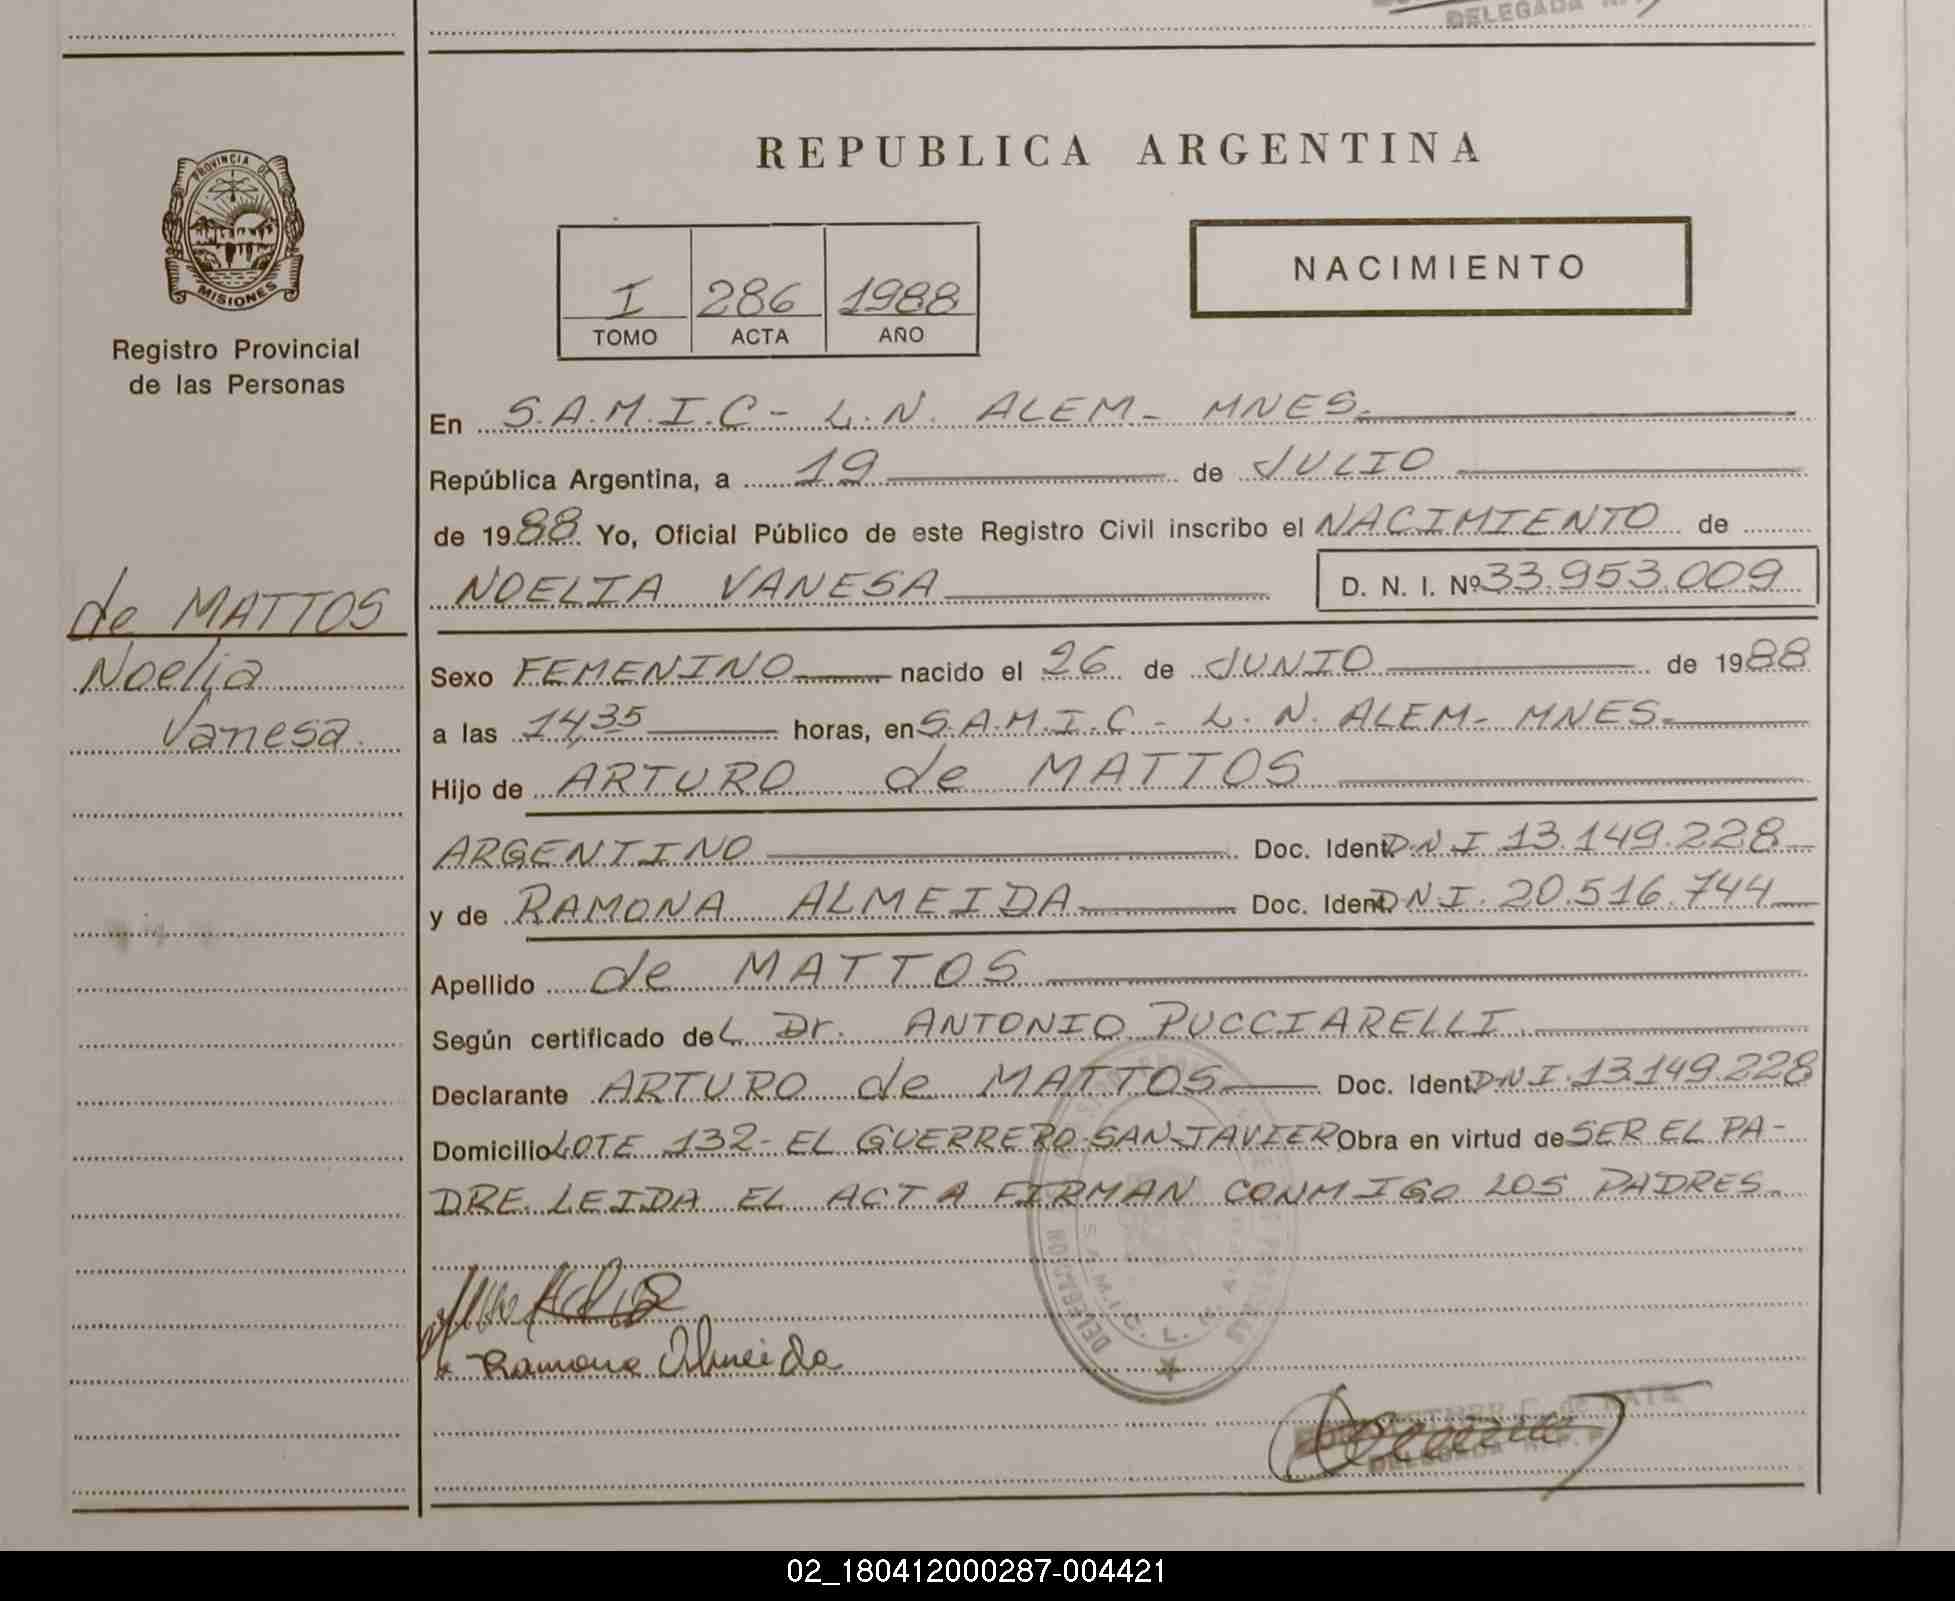 DELEGADA
REPUBLICA ARGENTINA
PROVINCIA DE
MISIONES
Registro Provincial
de las Personas
I 286 1988
TOMO ACTA AÑO
NACIMIENTO
En S.A.M.I.C - L.N. ALEM - MNES.
República Argentina, a 19 de JULIO
de 1988 Yo, Oficial Público de este Registro Civil inscribo el NACIMIENTO de
NOELIA VANESA D. N. I. Nº 33.953.009
de MATTOS
Noelia
Vanesa
Sexo FEMENINO nacido el 26 de JUNIO de 1988
a las 14,35 horas, en S.A.M.I.C - L. N. ALEM - MNES.
Hijo de ARTURO de MATTOS
ARGENTINO Doc. Ident. D.N.I 13.149.228
y de RAMONA ALMEIDA Doc. Ident. DNI. 20.516.744
Apellido de MATTOS
Según certificado deL Dr. ANTONIO PUCCIARELLI
Declarante ARTURO de MATTOS Doc. Ident. DNI. 13.149.228
Domicilio LOTE 132 - EL GUERRERO - SAN JAVIER Obra en virtud de SER EL PA-
DRE. LEIDA EL ACTA FIRMAN CONMIGO LOS PADRES.
Ramona Almeida
DELEGADA
02_180412000287-004421